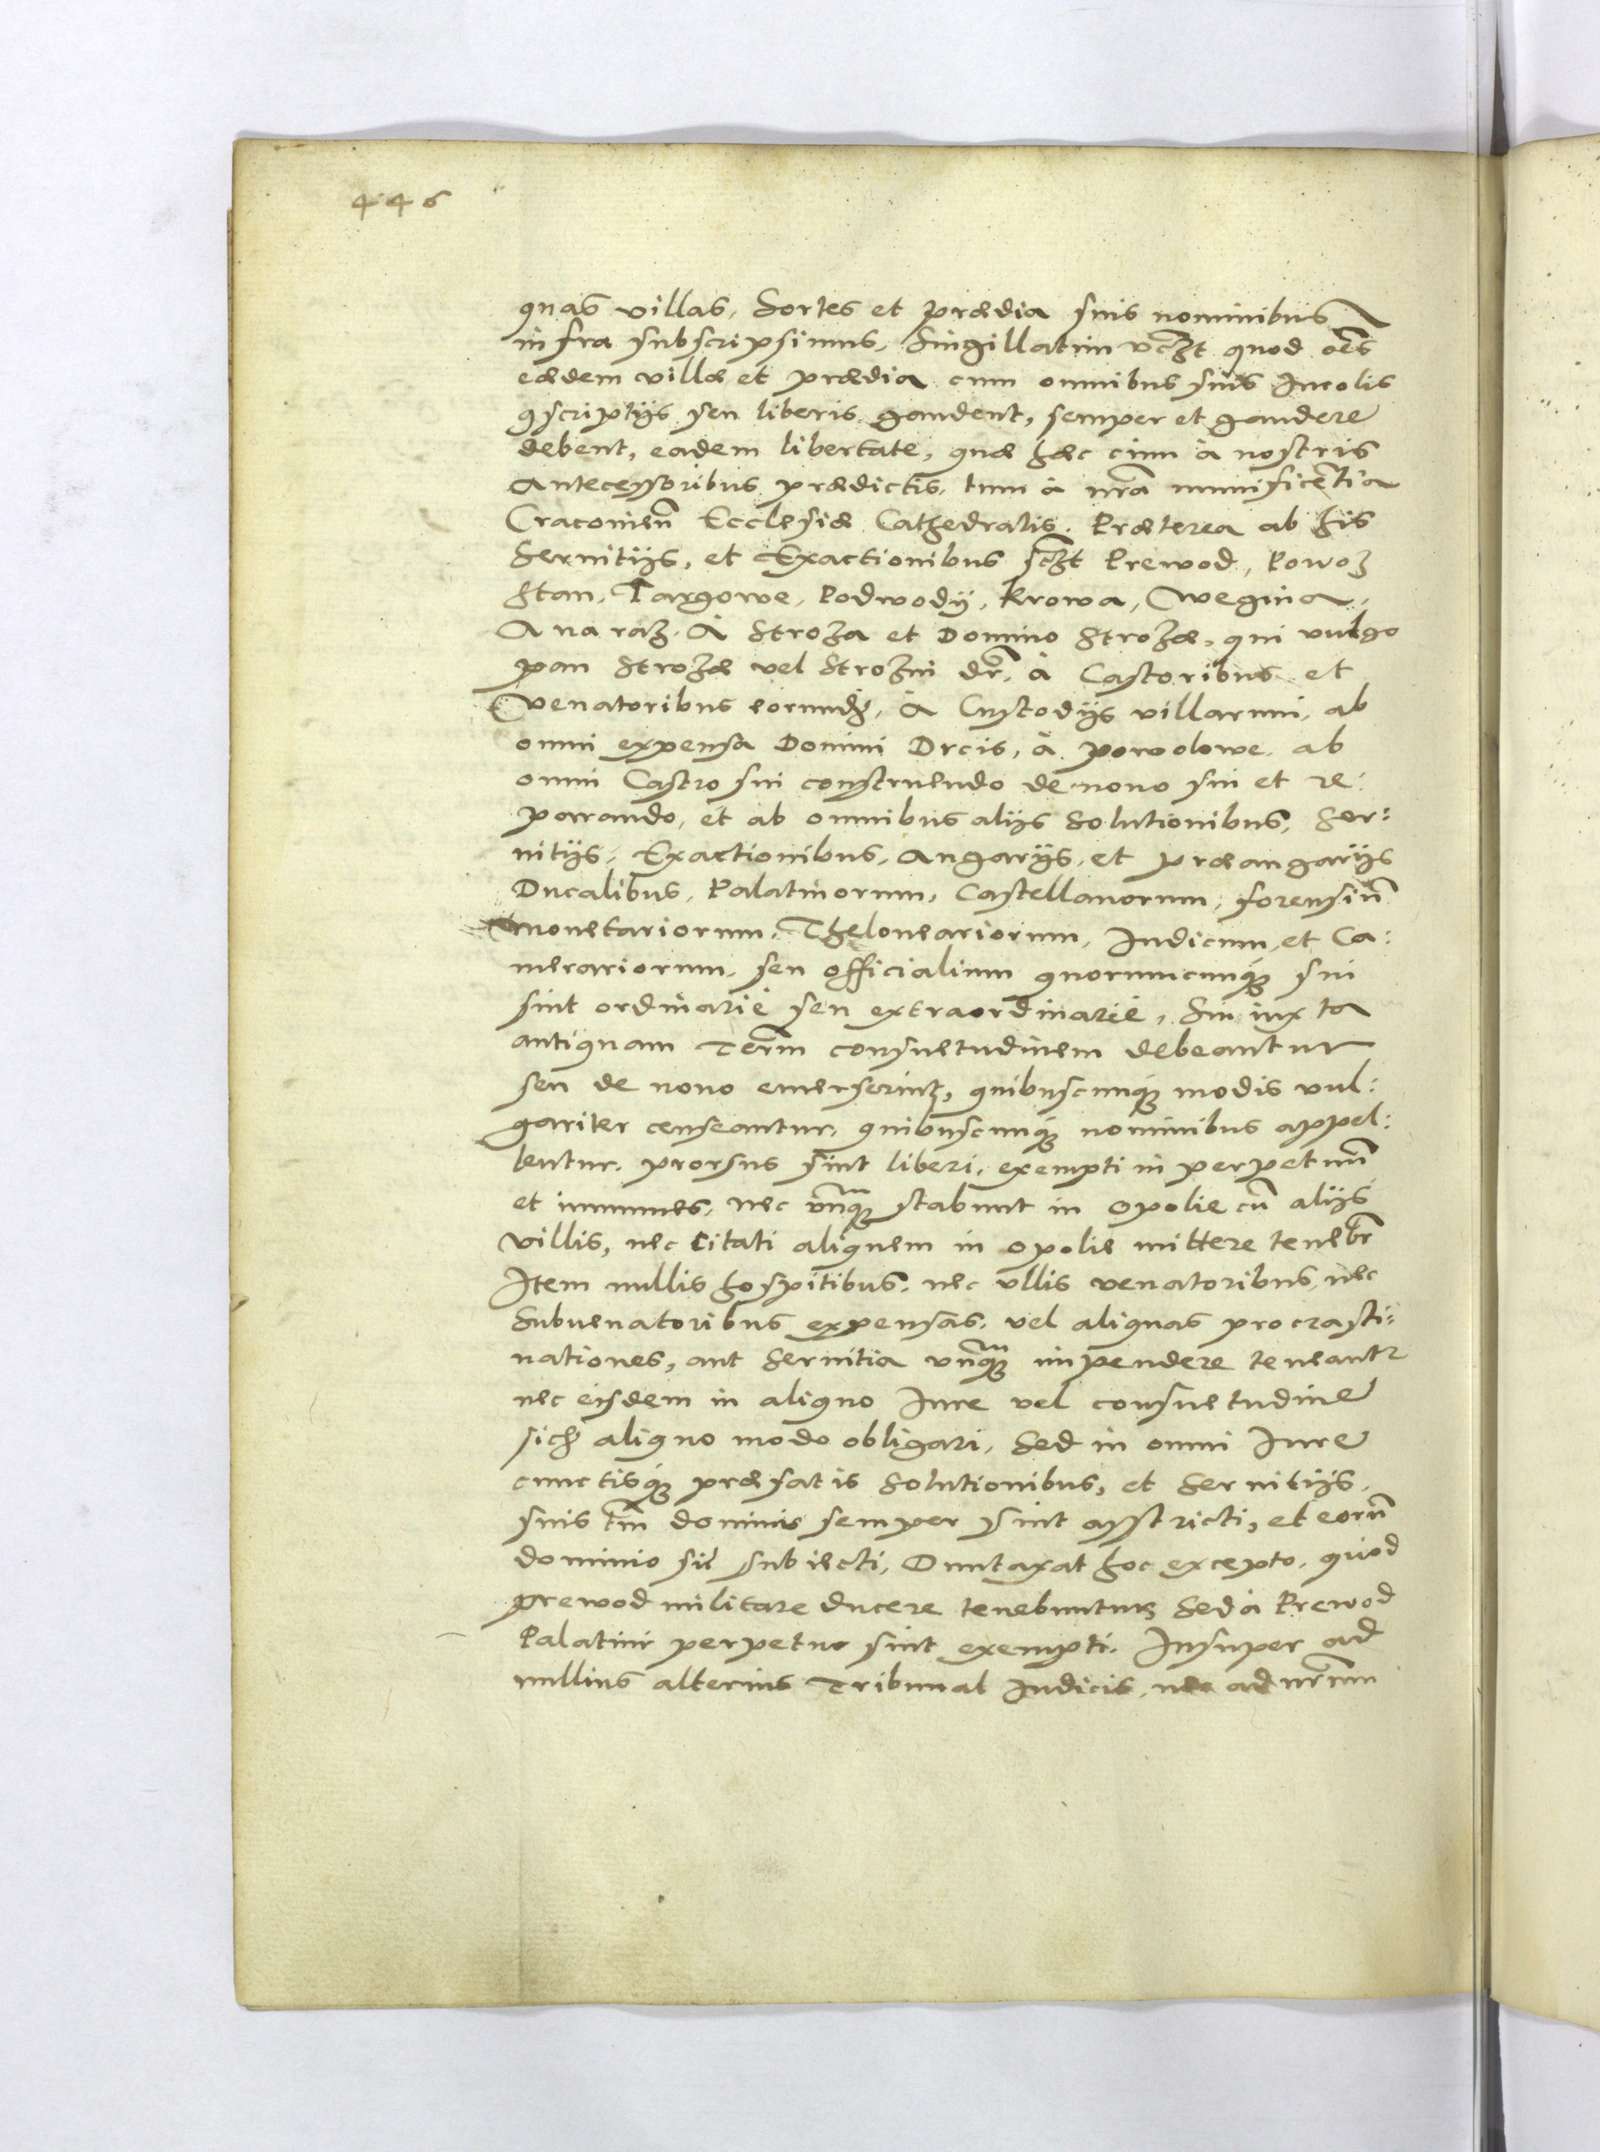 446
quas villas, Sortes et prædia suis nominibus
infra subscripsimus, Singillatim vczt quod oẽs
eædem villæ et prædia cum omnibus suis Incolis
9scriptijs seu liberis gaudent, semper et gaudere
debent, eadem libertate, quæ hæc cum à nostris
Antecessoribus prædictis, tum à nr̃a munificẽtia
Cracouieñ Ecclesiæ Cathedralis. Præterea ab his
Seruitijs, et Exactionibus sczt Prewod, Powoz
Stan, Targowe, Podwody, Krowa, Wegina,
A na raz. A Stroza et Domino Strozæ, qui vulgo
pan Strozæ vel Strozni dr̃, à Castoribus et
Venatoribus eorundẽ, A Custodijs villarum, ab
omni expensa Domini Ducis, à powolowe, ab
omni Castro siui construendo de nouo siui et re:
parando, et ab omnibus alijs Solutionibus, Ser:
uitijs, Exactionibus, Angarijs, et præangarijs
Ducalibus, Palatinorum, Castellanorum, forensiũ
Monetariorum, Theloneariorum, Iudicum, et Ca:
merariorum, seu officialium quorumcunq3 siui
sint ordinariè seu extraordinariè, Siui iuxta
antiquam Terræ consuetudinem debeantur
seu de nouo emerserint, quibuscunq3 modis vul:
gariter censeantur, quibuscunq3 nominibus appel:
lentur, prorsus sint liberi, exempti in perpetuũ
et immunes, nec vnq̃3 stabunt in opolie cũ alijs
villis, nec Citati aliquem in opolie mittere tenebr̃
Item nullis hospitibus, nec vllis venatoribus, nec
Subuenatoribus expensas, vel aliquas procrasti:
nationes, aut Seruitia vnq̃3 impendere teneantr
nec eisdem in aliquo Iure vel consuetudine
aliquo modo obligari, Sed in omni Iure
cunctisq3 præfatis Solutionibus, et Seruitijs,
suis tm̃ dominis semper sint asstricti, et eorũ
dominio sit subiecti, Duntaxat hoc excepto, quod
prewod militare ducere tenebuntur, Sed à Prewod
Palatini perpetuo sint exempti. Insuper ad
nullius alterius Tribunal Iudicis, nec ad nr̃um